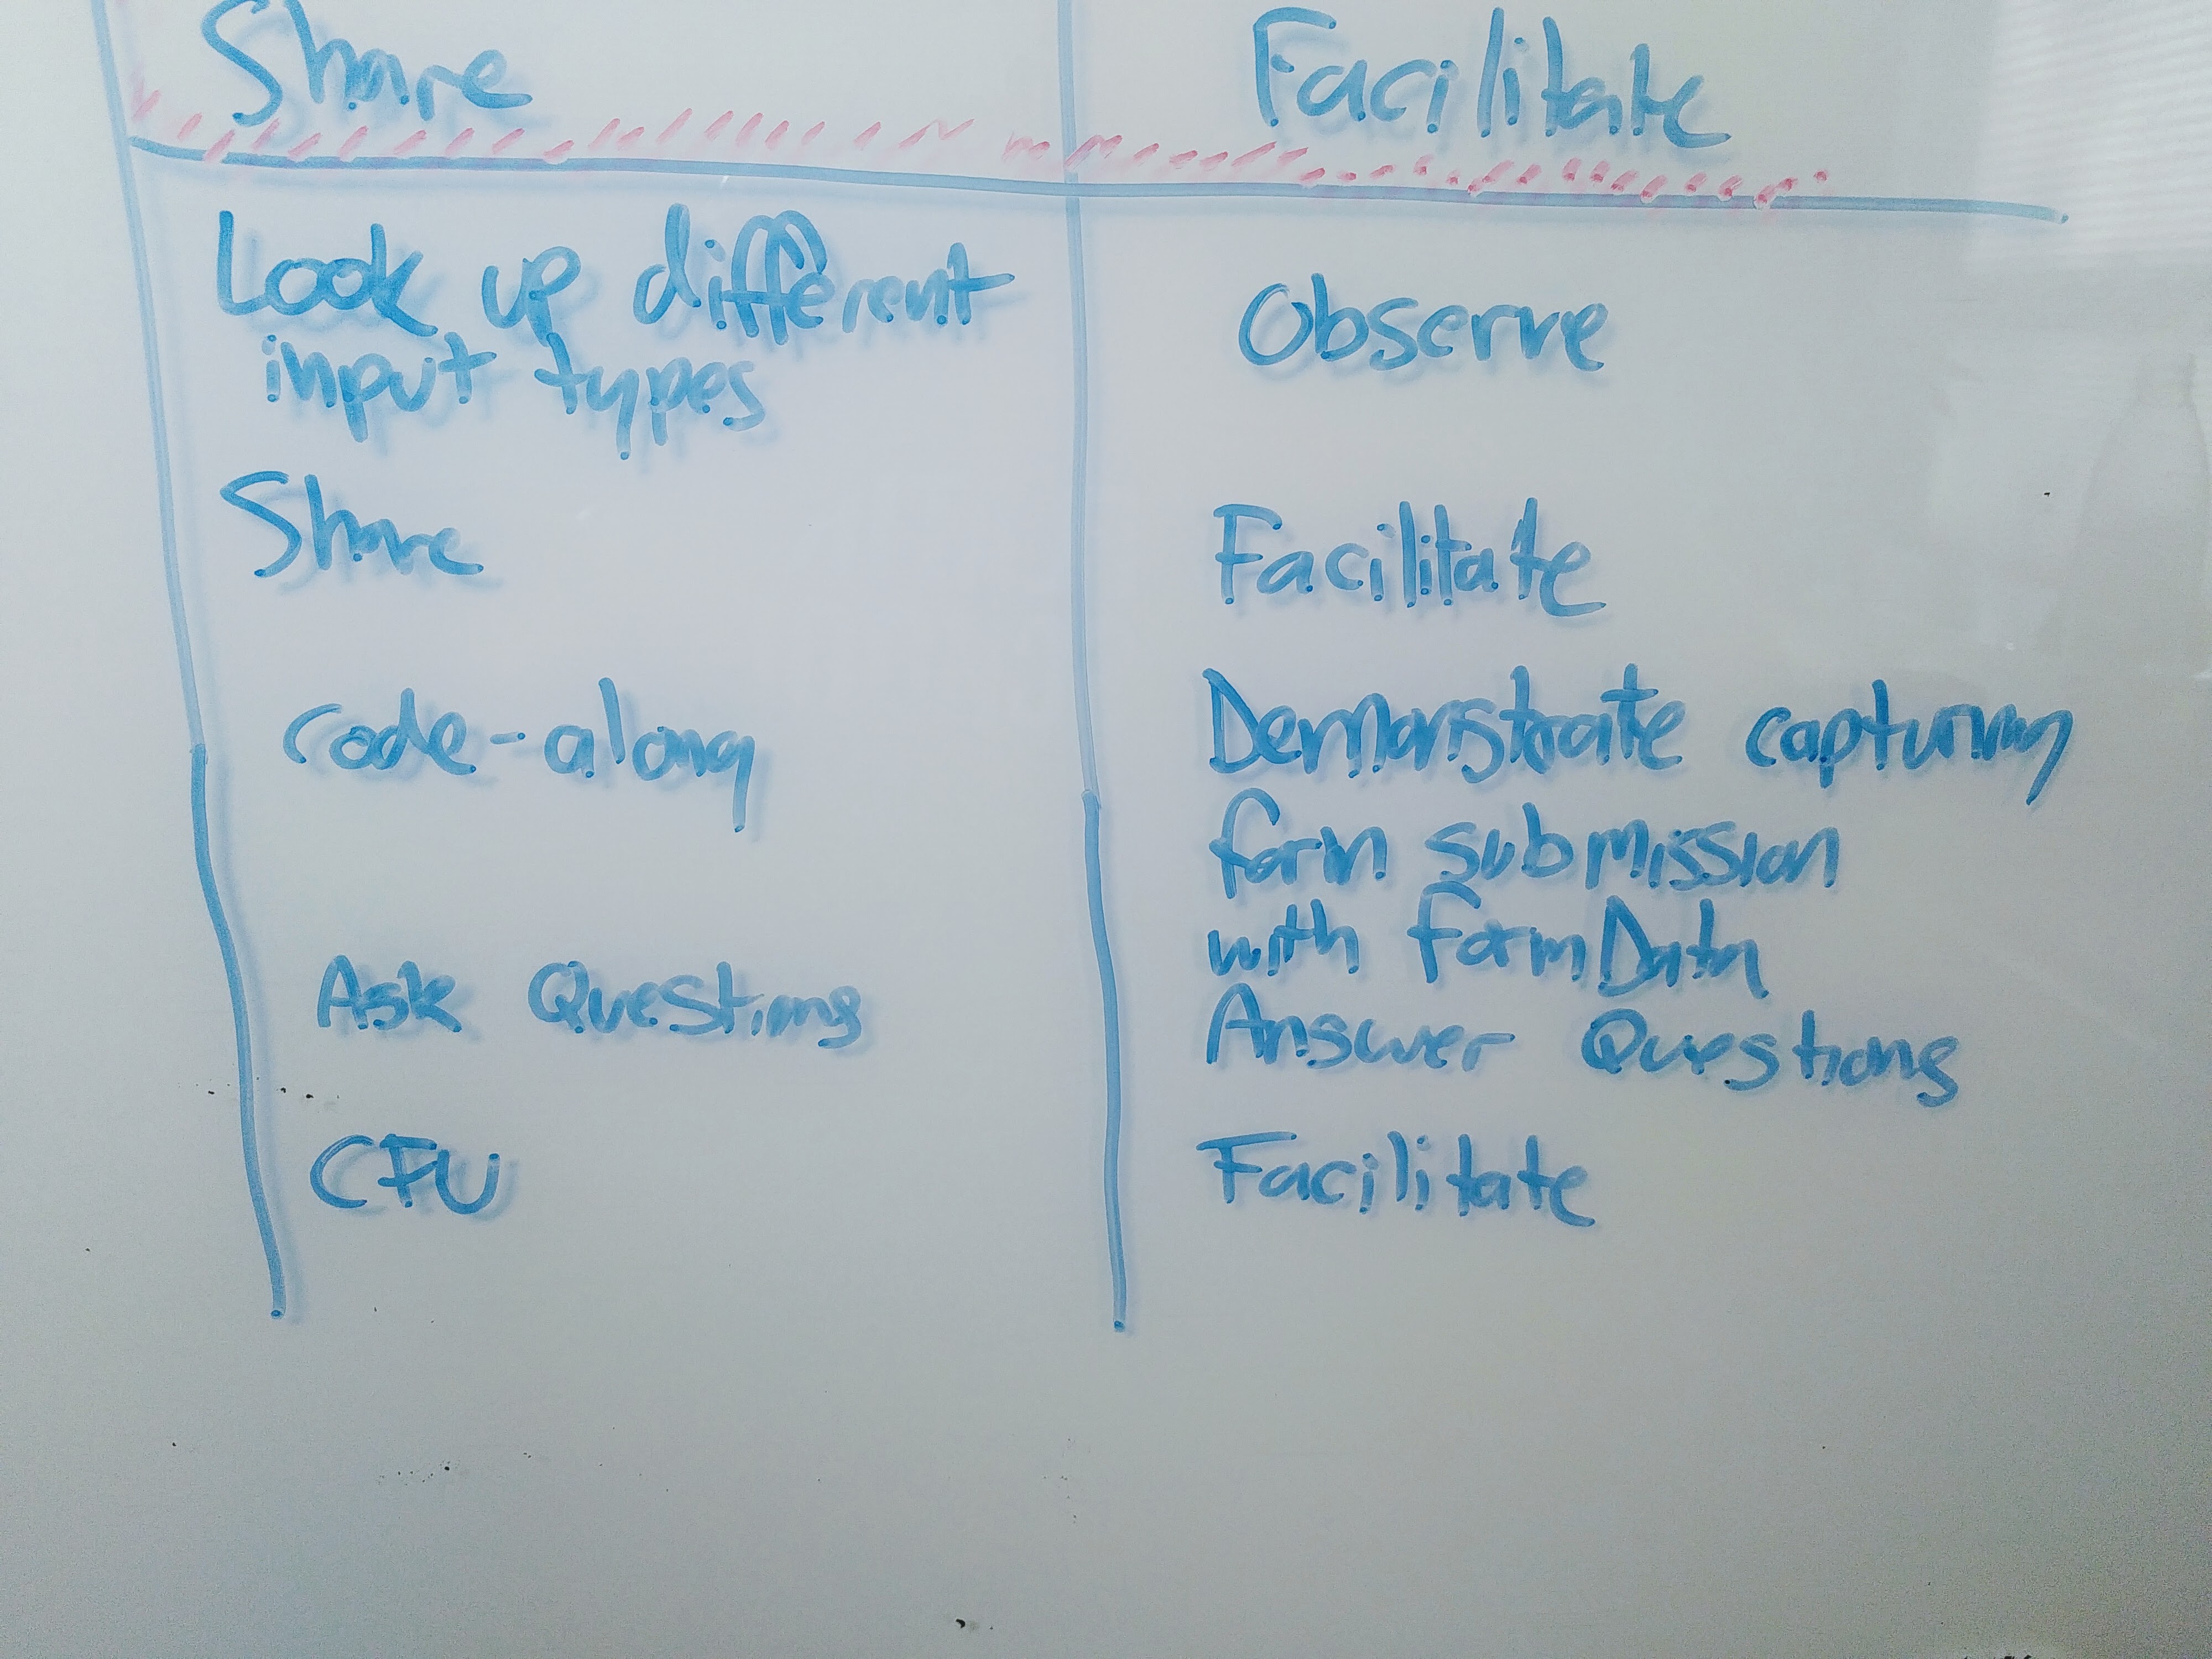 Share
Facilitate
Look up different
input types
Observe
Share
Facilitate
code-along
Demonstrate capturing
form submission
with formData
Ask Questions
Answer Questions
CFU
Facilitate